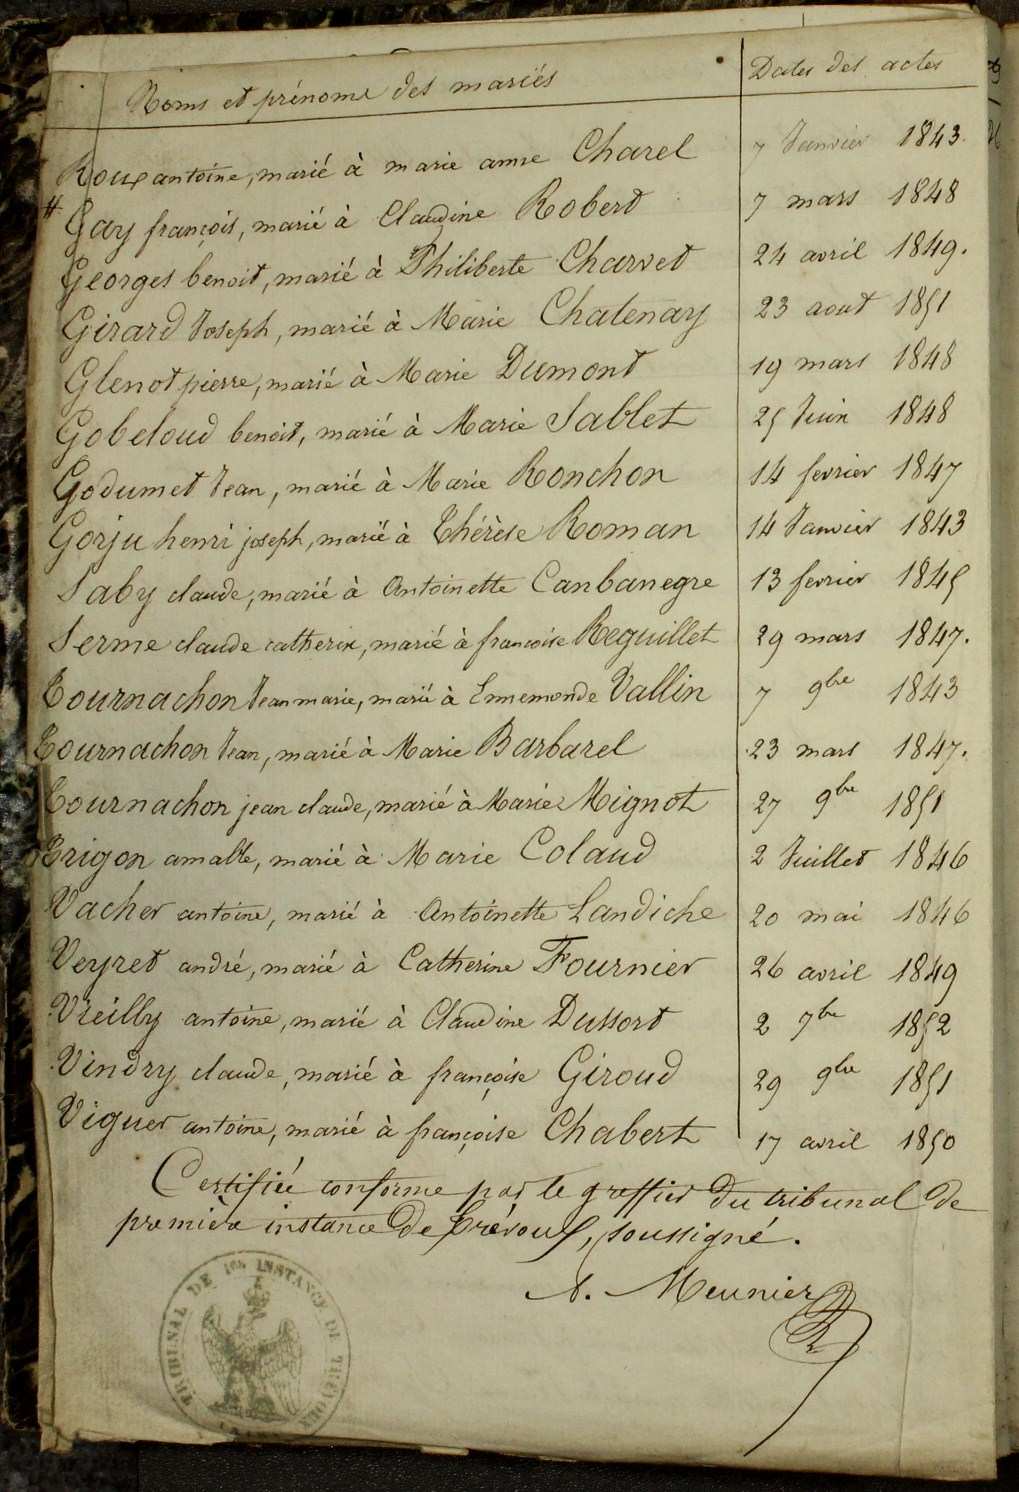 Noms et prénoms des mariés Dates des actes
Roux antoine, marié à marie anne Charel 7 Janvier 1843.
# Gay françois, marié à Claudine Robert 7 mars 1848
Georges benoit, marié à Philiberte Charvet 24 avril 1849.
Girard Joseph, marié à Marie Chatenay 23 aout 1851
Glenot pierre, marié à Marie Dumont 19 mars 1848
Gobeloud benoit, marié à Marie Sablet 25 Juin 1848
Godumet Jean, marié à Marie Ronchon 14 fevrier 1847
Gorju henri joseph, marié à Thérèse Roman 14 Janvier 1843
Saby claude, marié à Antoinette Canbanegre 13 fevrier 1845
Serme claude catherin, marié à françoise Reguillet 29 mars 1847.
Tournachon Jean marie, marié à Ennemonde Vallin 7 9bre 1843
Tournachon Jean, marié à Marie Barbarel 23 mars 1847.
Tournachon jean claude, marié à Marie Mignot 27 9bre 1851
Trigon amable, marié à Marie Colaud 2 Juillet 1846
Vacher antoine, marié à Antoinette Landiche 20 mai 1846
Veyret andré, marié à Catherine Fournier 26 avril 1849
Vieilly antoine, marié à Claudine Dussort 2 7bre 1852
Vindry claude, marié à françoise Giroud 29 9bre 1851
Viguer antoine, marié à françoise Chabert 17 avril 1850
Certifiée conforme par le greffier du tribunal de
première instance de Trévoux, soussigné.
A. Meunier
TRIBUNAL DE 1re INSTANCE DE TREVOUX